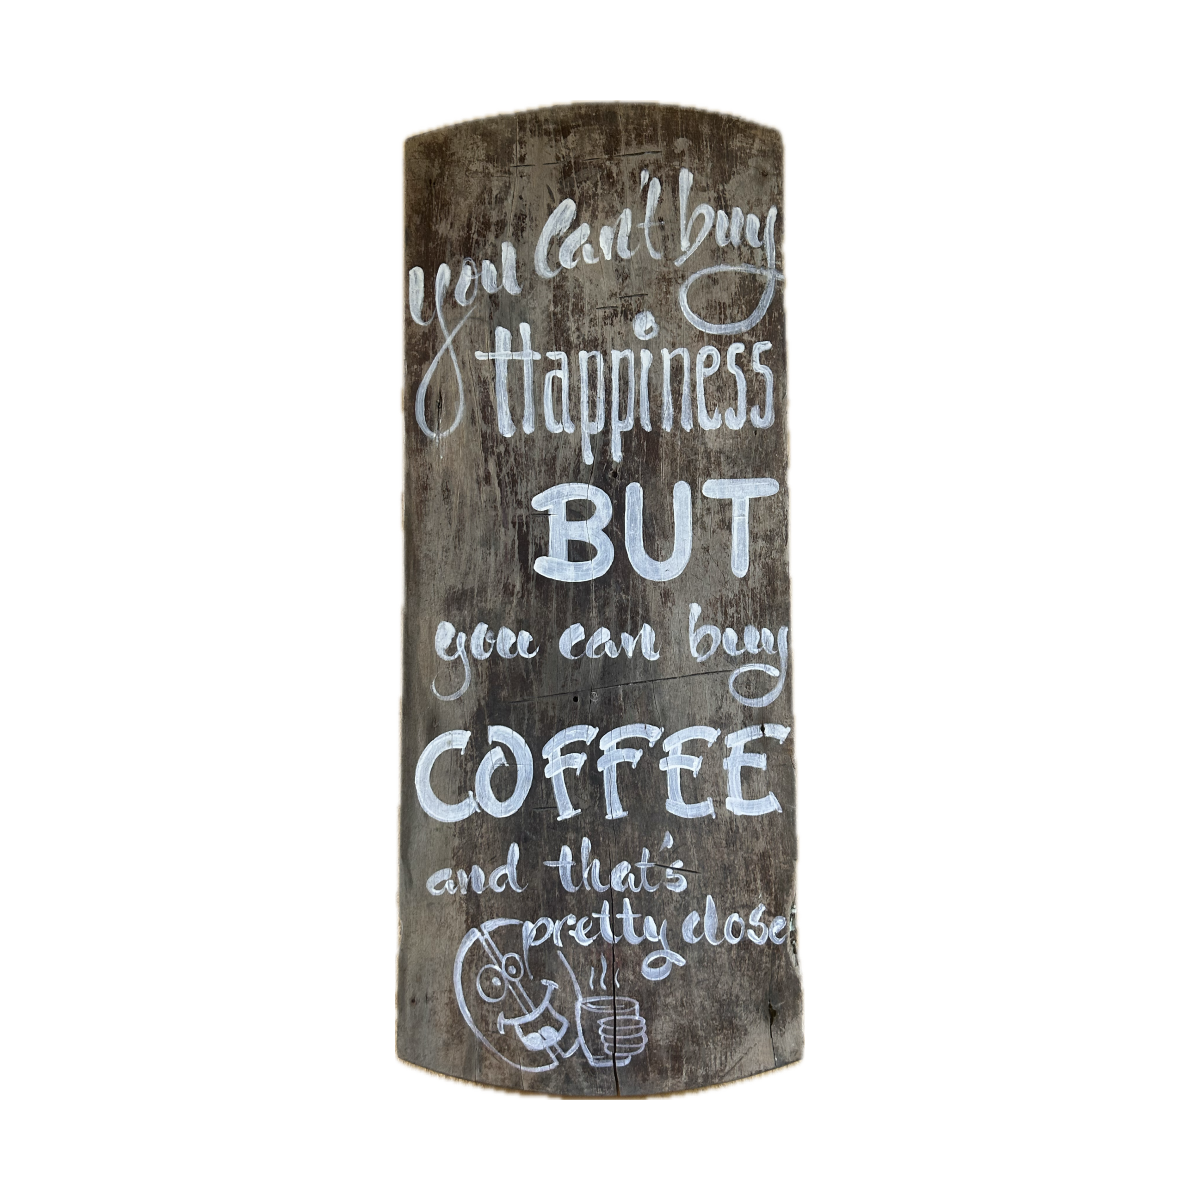 you can't buy
Happiness
BUT
you can buy
COFFEE
and that's
pretty close